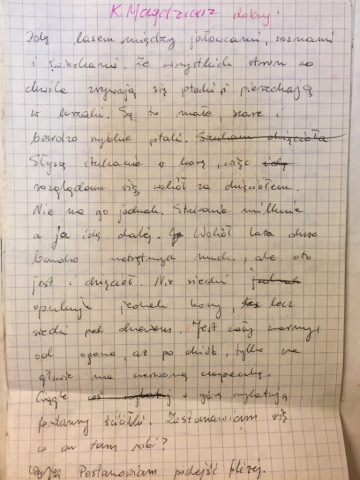 K. Magdziarz dobry!
Idę lasem między jałowcami, sosnami
i świerkami. Ze wszystkich stron co
chwila zrywają się ptaki i pierzchają
w krzaki. Są to małe, szare,
bardzo zwinne ptaki. Szukam dzięcioła
Słyszę stukanie w korę, więc idę
rozglądam się wokół za dzięciołem.
Nie ma go jednak. Stukanie milknie
a ja idę dalej. Wokół lata dużo
bardzo natrętnych much, ale oto
jest i dzięcioł. Nie siedzi jednak
opukuje jednak kory, lecz
siedzi pod drzewem. Jest cały czarny,
od ogona, aż po dziób, tylko na
głowie ma czerwoną czapeczkę.
Ciągle coś w górę wylatują
fontanny ściółki. Zastanawiam się
co on tam robi?
Postanawiam podejść bliżej.